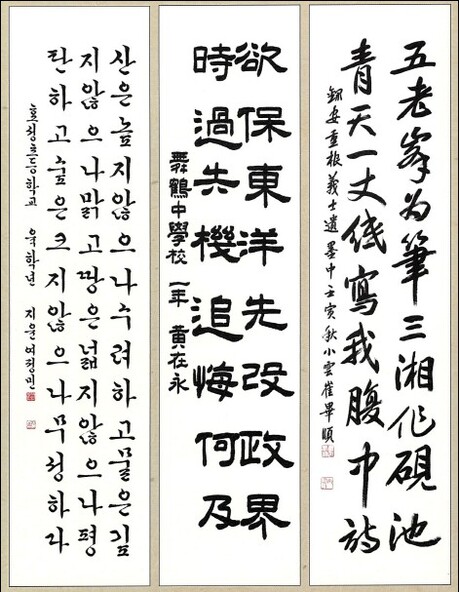 五老峯为筆三湘作硯池
青天一丈紙寫我腹中詩
錄安重根義士遺墨中壬寅秋小雲崔畢順
欲保東洋先改政界
時過失機追悔何及
舞鶴中學校 一年 黃在永
산은높지않으나수려하고물은깊
지않으나맑고땅은넓지않으나평
탄하고숲은크지않으나무성하라
호성초등학교 육학년 지원